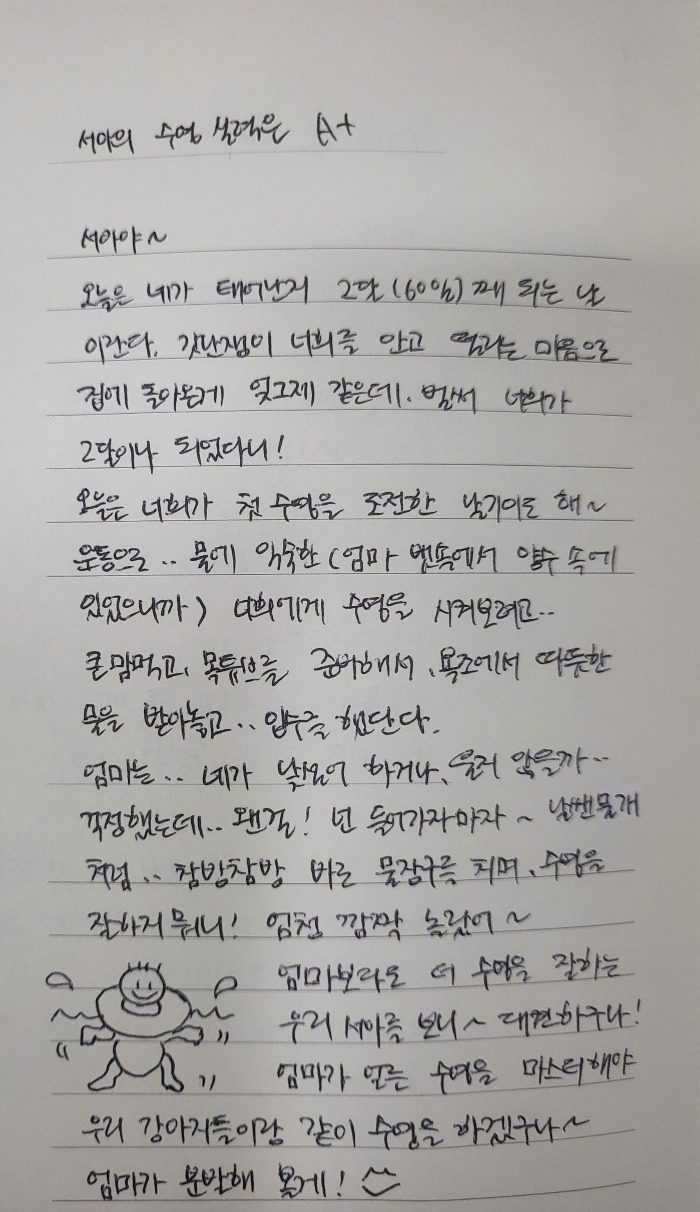 서아의 수영 실력은 A+
서아야~
오늘은 네가 태어난지 2달(60일)째 되는 날
이란다. 갓난쟁이 너희를 안고 떨리는 마음으로
집에 돌아온게 엊그제 같은데. 벌써 너희가
2달이나 되었다니!
오늘은 너희가 첫 수영을 도전한 날기이도 해~
운동으로.. 물에 익숙한(엄마 뱃속에서 양수 속에
있었으니까) 너희에게 수영을 시켜보려고..
큰맘먹고, 목튜브를 준비해서, 욕조에서 따뜻한
물을 받아놓고.. 입수를 했단다.
엄마는.. 네가 낯설어 하거나, 울지 않을까..
걱정했는데.. 왠걸! 넌 들어가자마자~ 날쌘물개
처럼.. 참방참방 바로 물장구를 치며, 수영을
잘하지 뭐니! 엄청 깜짝 놀랐어~
엄마보다도 더 수영을 잘하는
우리 서아를 보니~ 대견하구나!
엄마가 얼른 수영을 마스터해야
우리 강아지들이랑 같이 수영을 하겠구나~
엄마가 분발해 볼게!